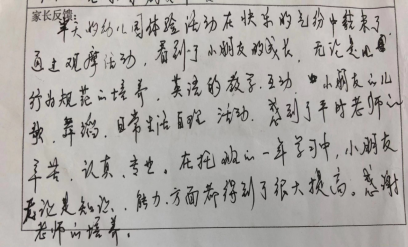 家长反馈:
半天的幼儿园体验活动在快乐的气份中结束了
通过观摩活动,看到了小朋友的成长,无论是
行为规范的培养,英语的教学、互动,小朋友的儿
歌、舞蹈、日常生活自理活动,感到了平时老师的
辛苦、认真、专业。在托班的一年学习中,小朋友
无论是知识、能力、方面都得到了很大提高。感谢
老师的培养。